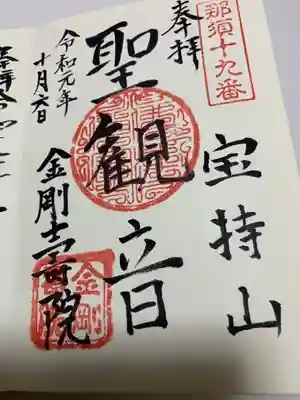 那須十九番
奉拝
宝持山
聖観音
金剛寿院
令和元年
十月六日
金剛